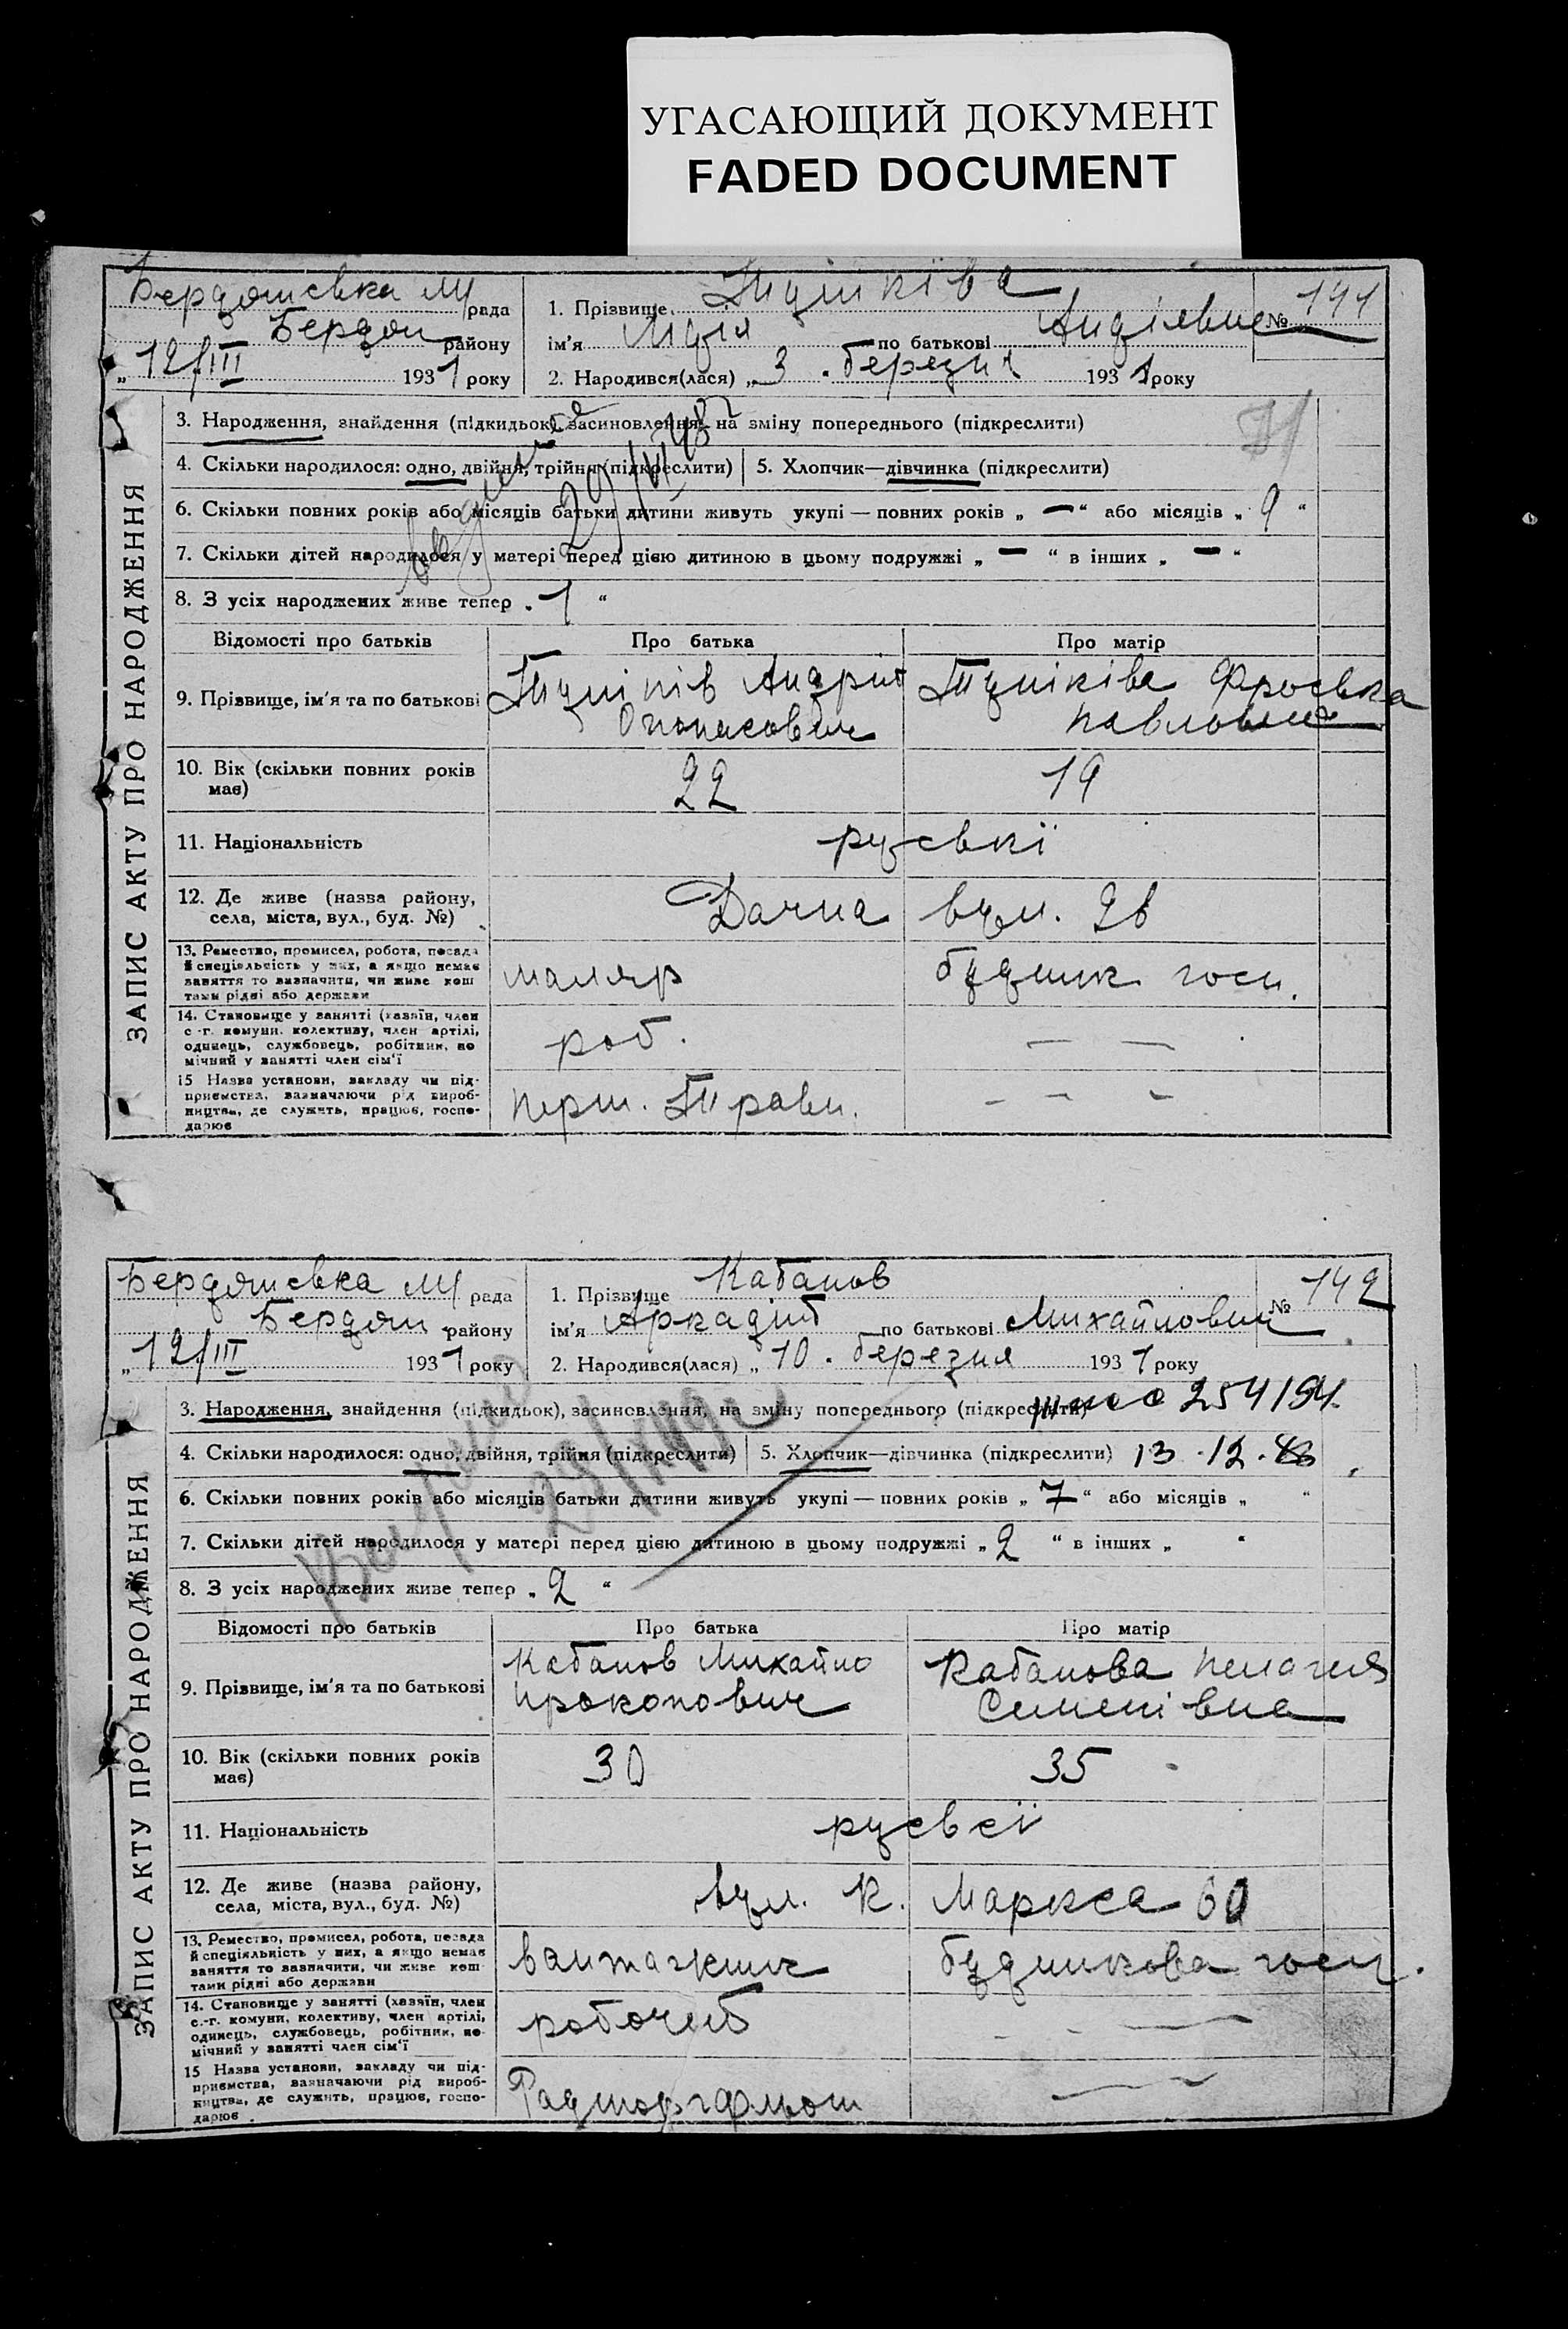 УГАСАЮЩИЙ ДОКУМЕНТ
FADED DOCUMENT
Бердянська м/ рада
Бердян району
„ 12/III 1931 року
1. Прізвище
ім'я Лідія по батькові Андріївна
2. Народився(лася) „ 3 . березня 1931 року
№ 141
ЗАПИС АКТУ ПРО НАРОДЖЕННЯ
3. Народження, знайдення (підкидьок), засиновлення, на зміну попереднього (підкреслити)
4. Скільки народилося: одно, двійня, трійня (підкреслити) 5. Хлопчик—дівчинка (підкреслити)
6. Скільки повних років або місяців батьки дитини живуть укупі — повних років „ — “ або місяців „ 9 “
7. Скільки дітей народилося у матері перед цією дитиною в цьому подружжі „ — “ в інших „ — “
8. З усіх народжених живе тепер „ 1 “
Відомості про батьків Про батька Про матір
9. Прізвище, ім'я та по батькові
Андрій Фроська
Опанасович Павловна
10. Вік (скільки повних років має) 22 19
11. Національність руські
12. Де живе (назва району, села, міста, вул., буд. №) Дачна вул. 26
13. Ремество, промисел, робота, посада й спеціяльність у них, а якщо немає заняття то зазначити, чи живе коштами рідні або держави
маляр будинк госп.
14. Становище у занятті (хазяїн, член с.-г. комуни, колективу, член артілі, одинець, службовець, робітник, помічний у занятті член сім'ї
роб. — —
15 Назва установи, закладу чи підприємства, зазначаючи рід виробництва, де служить, працює, господарює
Перш. Травн. — — -
Бердянська м/ рада
Бердян району
„ 12/III 1931 року
1. Прізвище Кабанов
ім'я Аркадій по батькові Михайлович
2. Народився(лася) „ 10 . березня 1931 року
№ 142
ЗАПИС АКТУ ПРО НАРОДЖЕННЯ
3. Народження, знайдення (підкидьок), засиновлення, на зміну попереднього (підкреслити) 254194.
4. Скільки народилося: одно, двійня, трійня (підкреслити) 5. Хлопчик—дівчинка (підкреслити) 13.12.
6. Скільки повних років або місяців батьки дитини живуть укупі — повних років „ 7 “ або місяців „ “
7. Скільки дітей народилося у матері перед цією дитиною в цьому подружжі „ 2 “ в інших „ “
8. З усіх народжених живе тепер „ 2 “
Відомості про батьків Про батька Про матір
9. Прізвище, ім'я та по батькові
Кабанов Михайло Кабанова Пелагия
Прокопович Семенівна
10. Вік (скільки повних років має) 30 35
11. Національність
12. Де живе (назва району, села, міста, вул., буд. №) вул. К. Маркса 60
13. Ремество, промисел, робота, посада й спеціяльність у них, а якщо немає заняття то зазначити, чи живе коштами рідні або держави
вантажник будинкова госп.
14. Становище у занятті (хазяїн, член с.-г. комуни, колективу, член артілі, одинець, службовець, робітник, помічний у занятті член сім'ї
робочий — —
15 Назва установи, закладу чи підприємства, зазначаючи рід виробництва, де служить, працює, господарює
Радторгфлот —